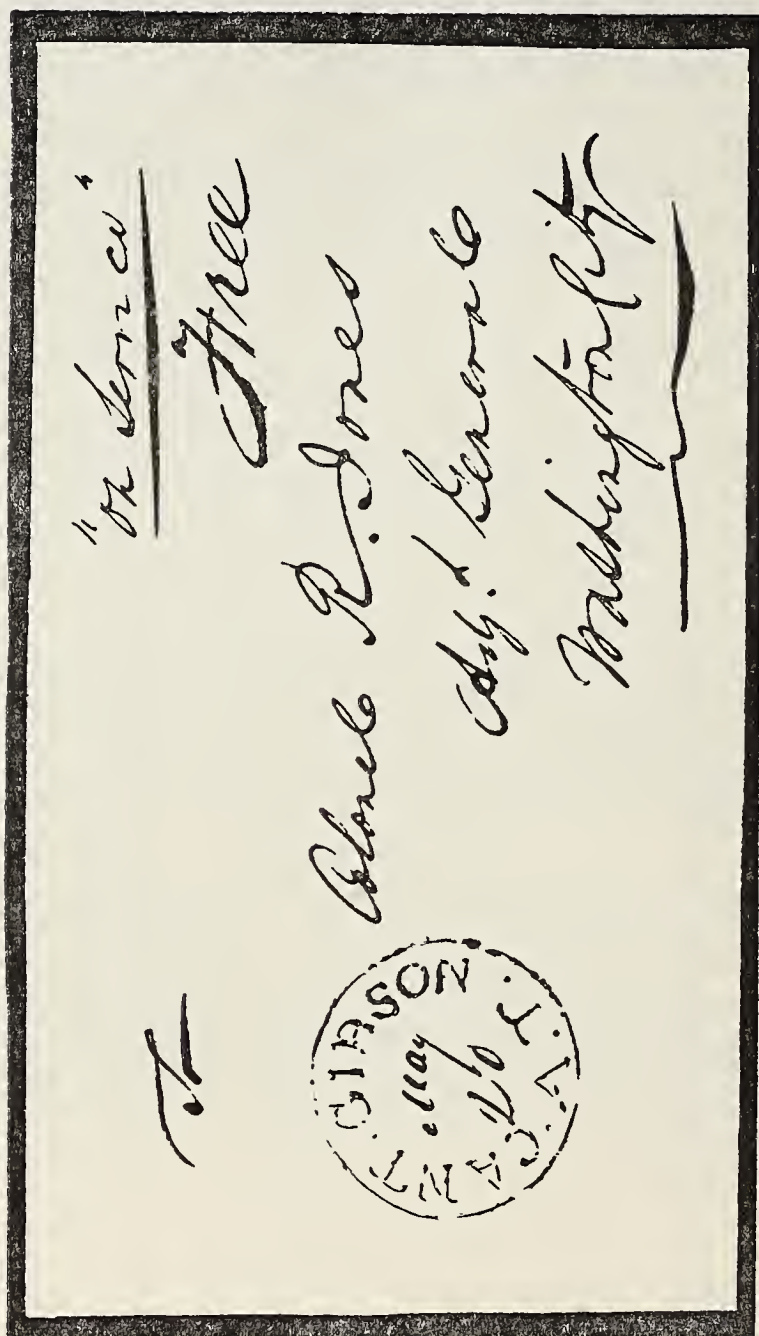 "On Service"
Free
To
Colonel R. Jones
Adj.t General
Washington City
CANT. GIBSON A.T.
May
20